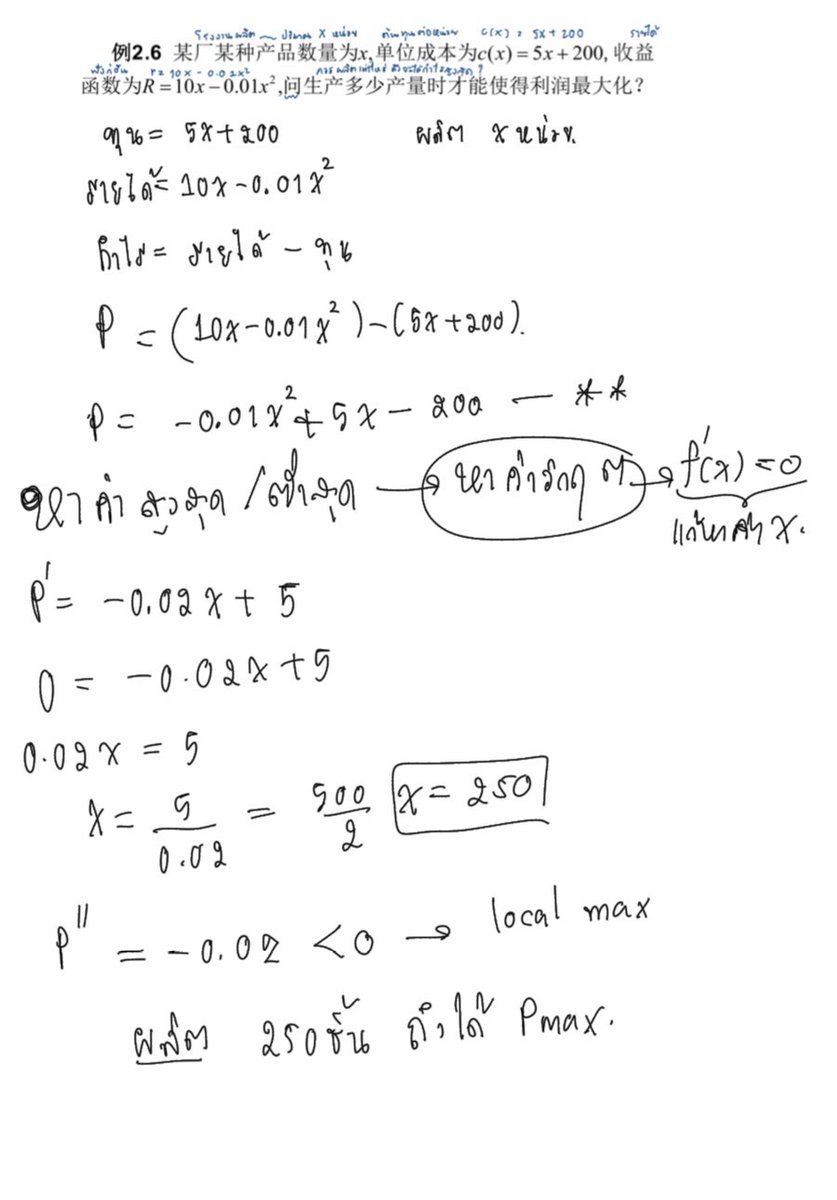 โรงงานผลิต ~ ปริมาณ x หน่วย ต้นทุนต่อหน่วย c(x) = 5x + 200 รายได้
例2.6 某厂某种产品数量为x,单位成本为c(x)=5x+200, 收益
ฟังก์ชัน r = 10x - 0.02x² ควรผลิตเท่าไหร่ ถึงจะได้กำไรสูงสุด ?
函数为R=10x−0.01x²,问生产多少产量时才能使得利润最大化？
ทุน = 5x+200 ผลิต x หน่วย.
รายได้ = 10x-0.01x²
กำไร = รายได้ - ทุน
P = (10x-0.01x²)-(5x+200).
P = -0.01x²+5x-200 — **
หาค่า สูงสุด /ต่ำสุด → หาค่าวิกฤต → f'(x)=0
แก้หาค่า x.
P' = -0.02x+5
0 = -0.02x+5
0.02x = 5
x = 5/0.02 = 500/2 x = 250
P'' = -0.02 <0 → local max
ผลิต 250 ชิ้น ถึงได้ Pmax.